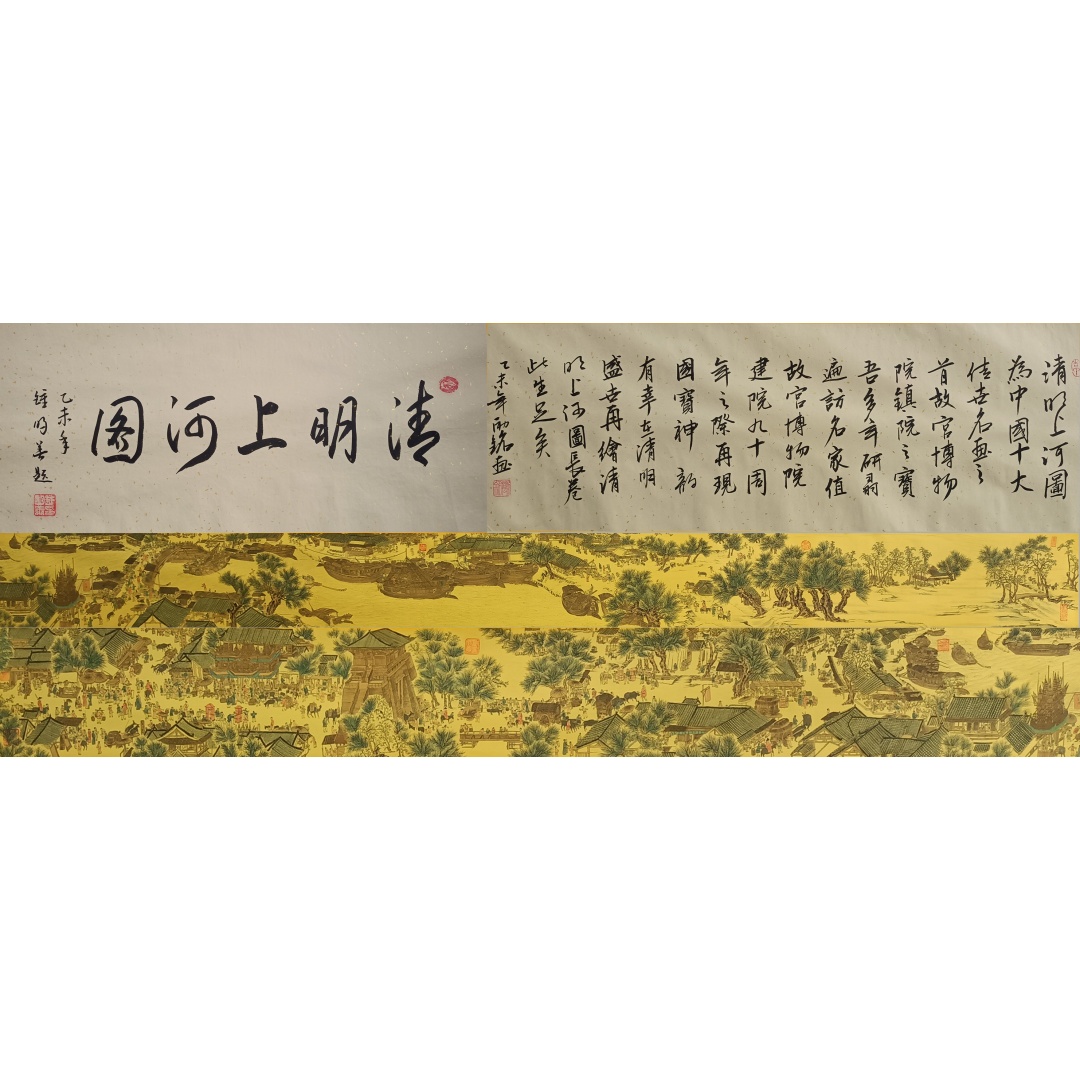 清明上河图
乙未年
锺明善题
清明上河圖
為中國十大
传世名画之
首故宫博物
院鎮院之寶
吾多年研習
遍訪名家值
故宫博物院
建院九十周
年之際再現
國寶神韵
有幸在清明
盛世再繪清
明上河圖長卷
此生足矣
乙未年